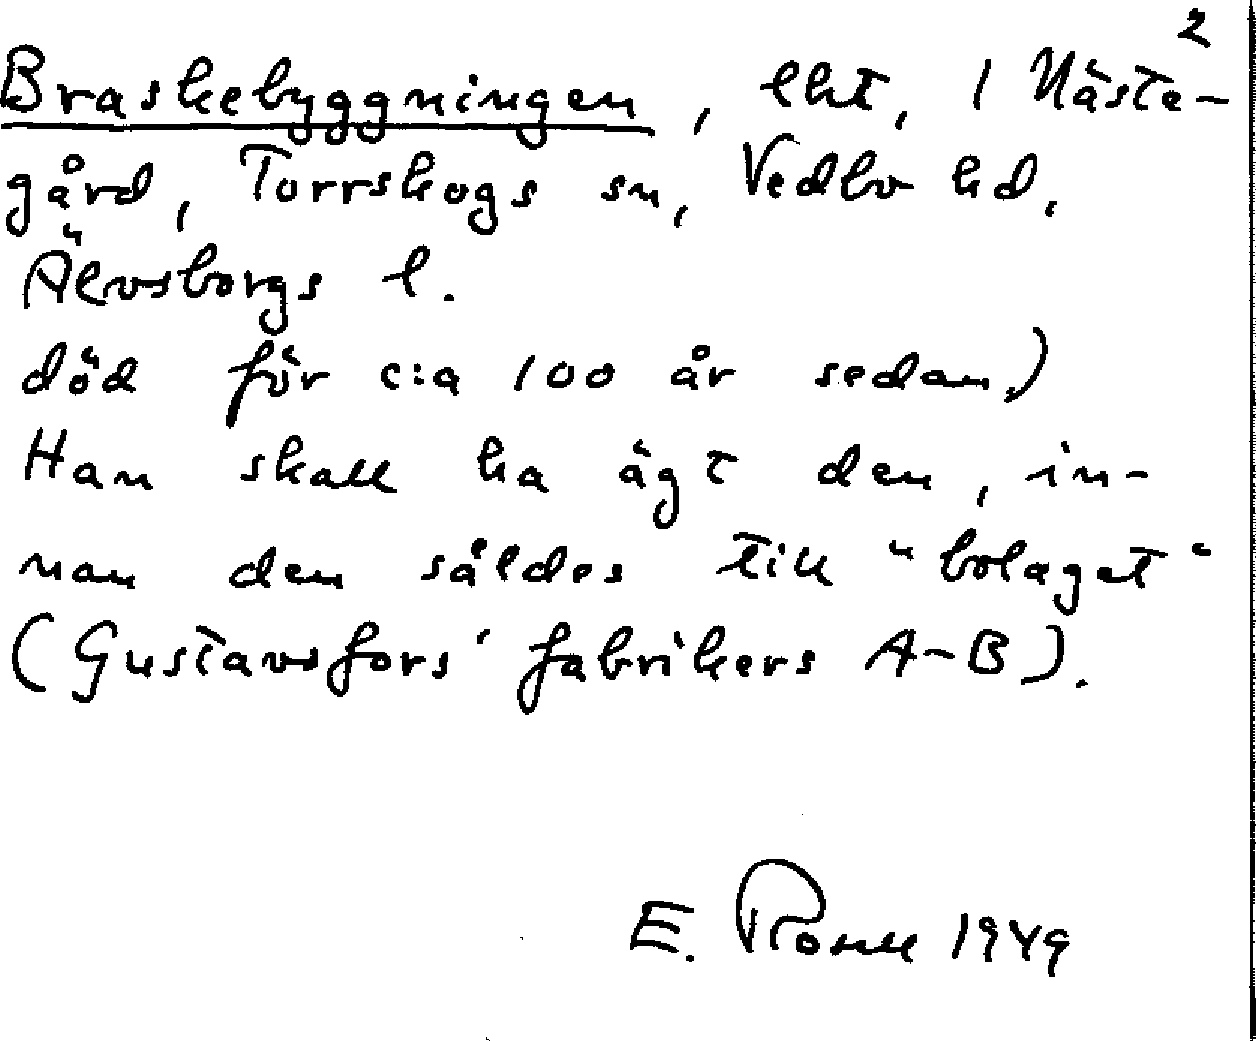 2
Braskebyggningen, lht, 1 Näste-
gård, Torrskogs sn, Vedbo hd,
Älvsborgs l.
död för c:a 100 år sedan.)
Han skall ha ägt den, in-
nan den såldes till "bolaget"
(Gustavsfors' fabrikers A-B).
E. 1949